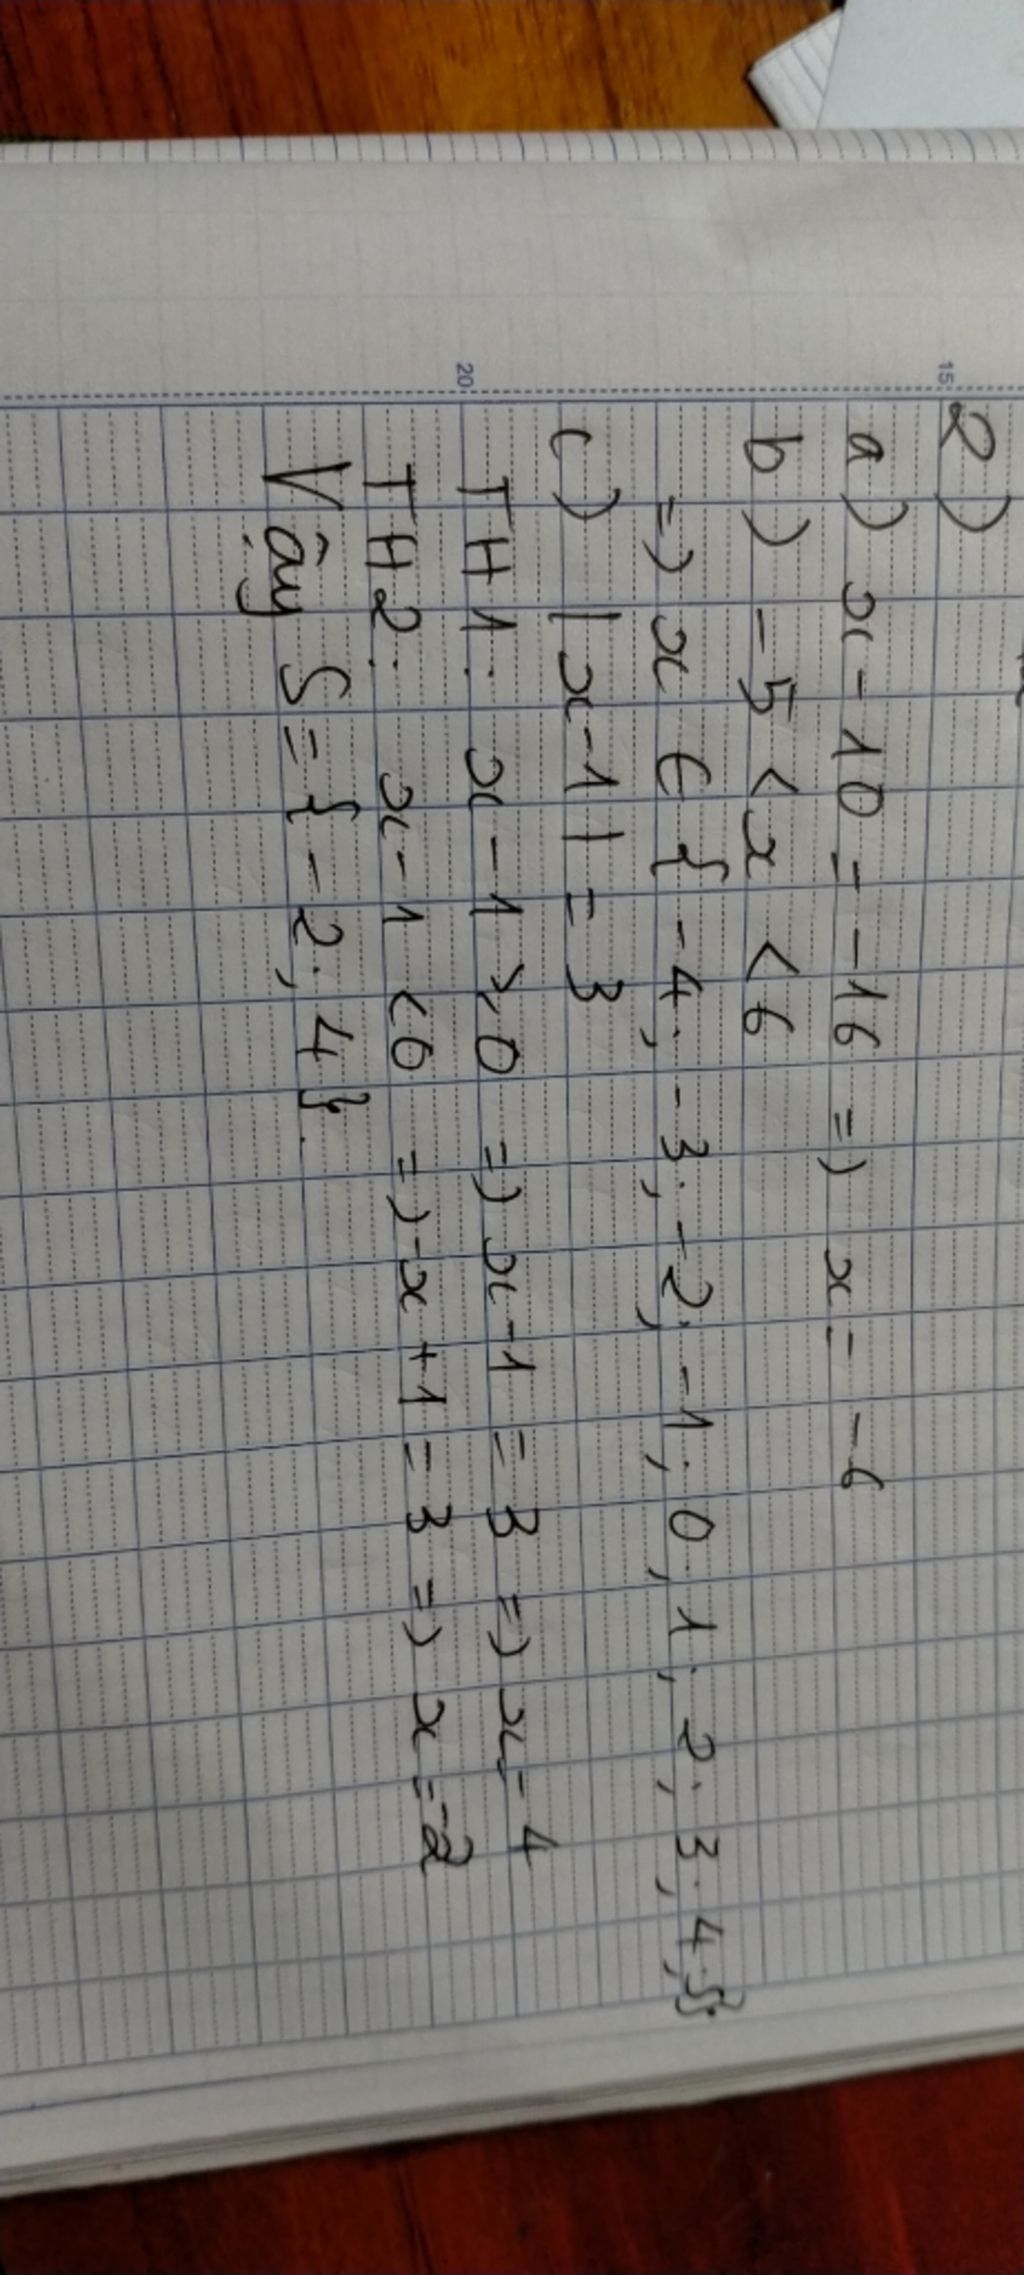 2)
a) x - 10 = -16 => x = -6
b) -5 < x < 6
=> x ∈ {-4; -3; -2; -1; 0; 1; 2; 3; 4; 5}
c) |x-1| = 3
TH1: x - 1 ≥ 0 => x - 1 = 3 => x = 4
TH2: x - 1 < 0 => -x + 1 = 3 => x = -2
Vậy S = {-2; 4}.
15
20